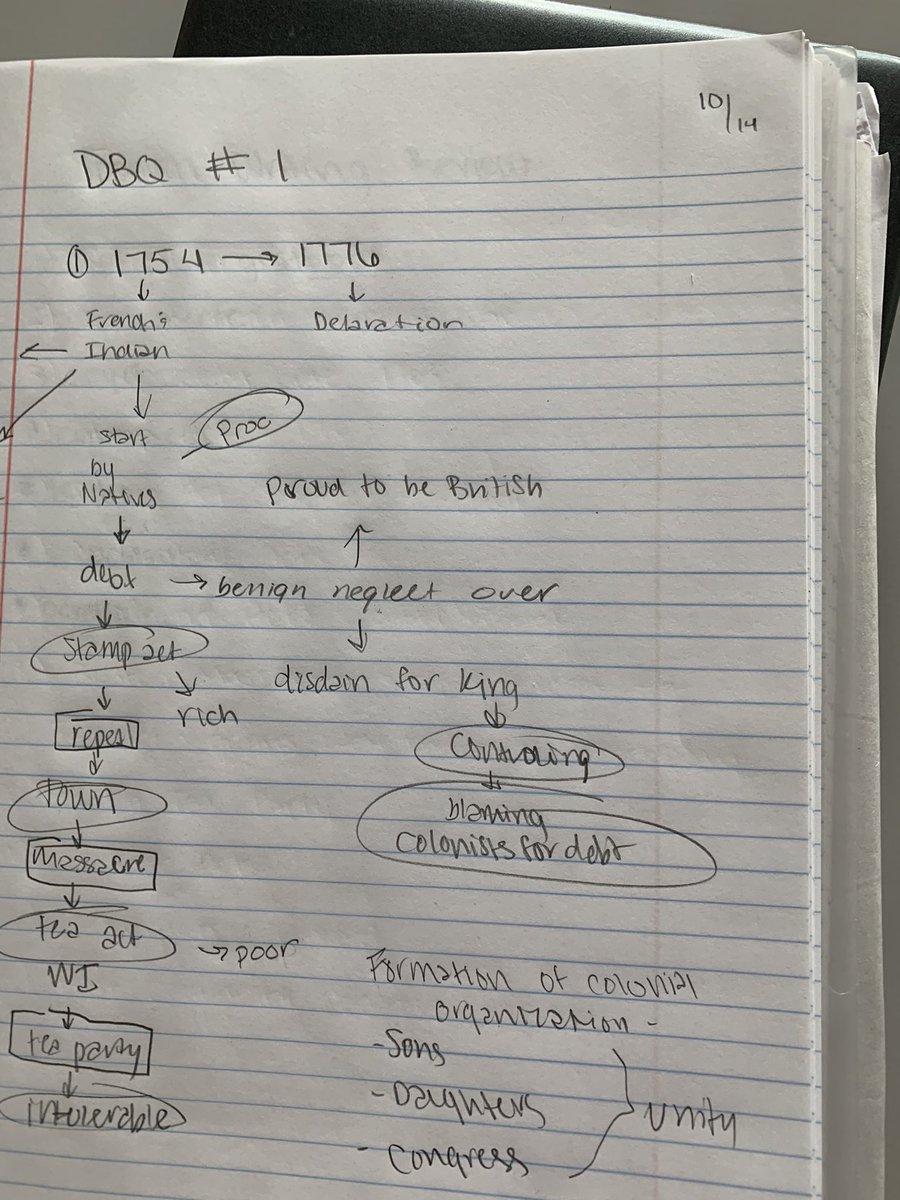 10/14
DBQ # 1
① 1754 → 1776
↓ ↓
French & Delaration
← Indian
↓
start Proc
by
Natives Proud to be British
↓ ↑
debt → benign neglect over
↓ ↓
Stamp act disdain for King
↓ ↘ rich ↓
repeal Controwing
↓ ↓
Town blaming
↓ colonists for debt
Massacre
↓
tea act → poor
WI Formation of colonial
↓ organization -
tea party - Sons
↓ - Daughters } unity
intolerable - Congress